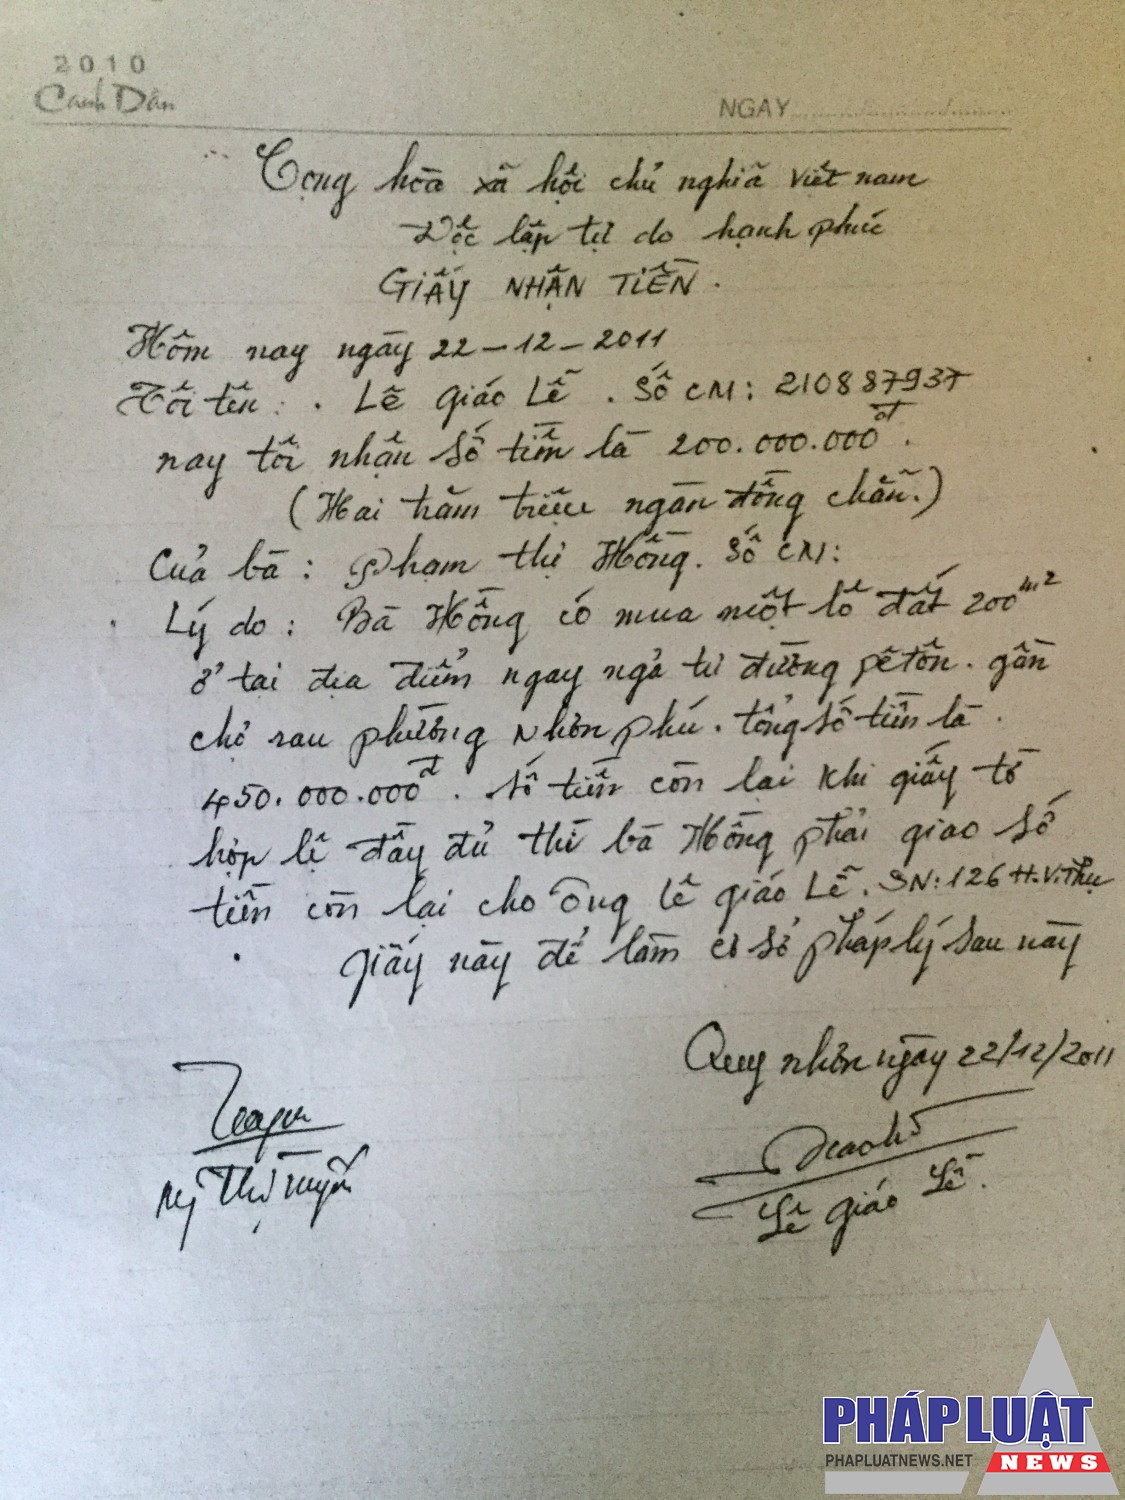 2010
Canh Dần
NGÀY
Cộng hòa xã hội chủ nghĩa việt nam
Độc lập tự do hạnh phúc
GIẤY NHẬN TIỀN.
Hôm nay ngày 22-12-2011
Tôi tên: . Lê giáo Lễ. Số CM: 210887937
nay tôi nhận số tiền là 200.000.000đ.
(Hai trăm triệu ngàn đồng chẵn.)
Của bà: phạm thị Hồng. Số CM:
Lý do: Bà Hồng có mua một lô đất 200m2
ở tại địa điểm ngay ngả tư đường bê tôn. gần
chợ sau phường nhơn phú. tổng số tiền là.
450.000.000đ. số tiền còn lại khi giấy tờ
hợp lệ đầy đủ thì bà Hồng phải giao số
tiền còn lại cho ông lê giáo Lễ. SN: 126 H.V.Thụ
giấy này để làm cơ sở pháp lý sau này
Quy nhơn ngày 22/12/2011
Lê giáo Lễ.
PHÁP LUẬT
PHAPLUATNEWS.NET
NEWS